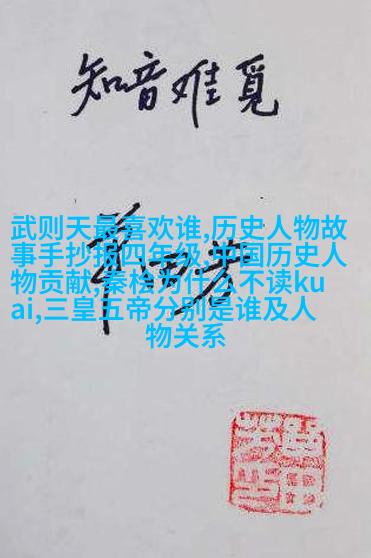 知音难觅
武则天最喜欢谁,历史人物故
事手抄报四年级,中国历史人
物贡献,秦桧为什么不读ku
ai,三皇五帝分别是谁及人
物关系